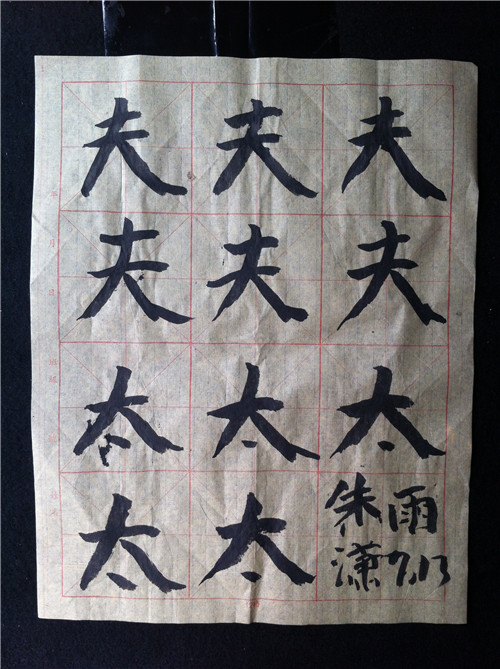 夫 夫 夫
夫 夫 夫
太 太 太
太 太
朱雨
潇7.13
月
日